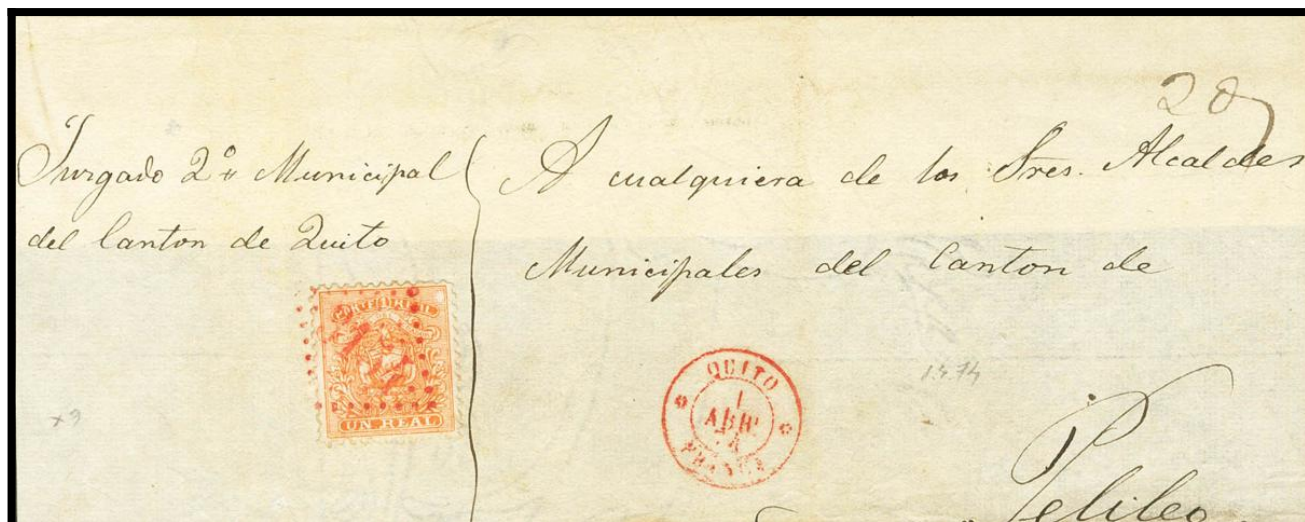 20
Jurgado 2º Municipal
del Canton de Quito
A cualquiera de los Sres. Alcaldes
Municipales del Canton de
Pelileo
UN REAL
QUITO
1
ABR
74
FRANCA
1.4.74
x9